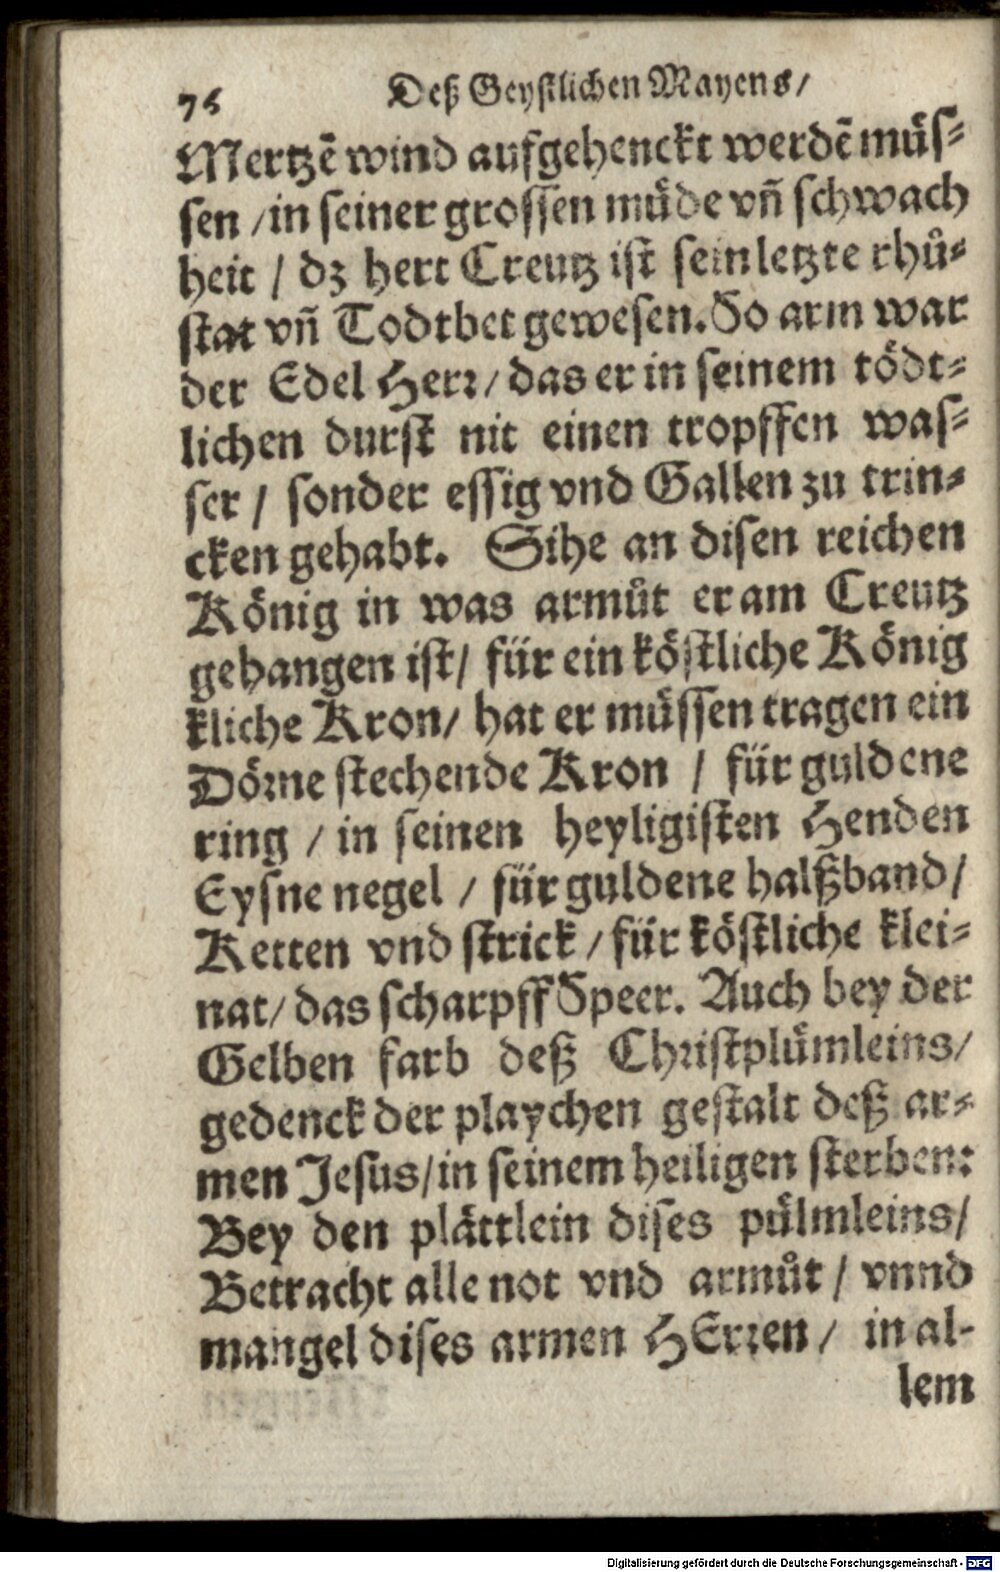 76 Deß Geystlichen Mayens/
Mertzē wind aufgehenckt werdē müs⸗
sen /in seiner grossen müde vñ schwach
heit / dz hert Creutz ist sein letzte rhů⸗
stat vñ Todtbet gewesen. So arm war
der Edel Herr/ das er in seinem tödt⸗
lichen durst nit einen tropffen was⸗
ser / sonder essig vnd Gallen zu trin⸗
cken gehabt. Sihe an disen reichen
König in was armůt er am Creutz
gehangen ist/ für ein köstliche König
kliche Kron/ hat er müssen tragen ein
Dörne stechende Kron / für guldene
ring / in seinen heyligisten Henden
Eysne negel / für guldene halßband/
Ketten vnd strick / für köstliche klei⸗
nat/ das scharpff Speer. Auch bey der
Gelben farb deß Christplümleins/
gedenck der playchen gestalt deß ar⸗
men Jesus/in seinem heiligen sterben:
Bey den plättlein dises pülmleins/
Betracht alle not vnd armůt / vnnd
mangel dises armen HErren / in al-
lem
Digitalisierung gefördert durch die Deutsche Forschungsgemeinschaft - DFG